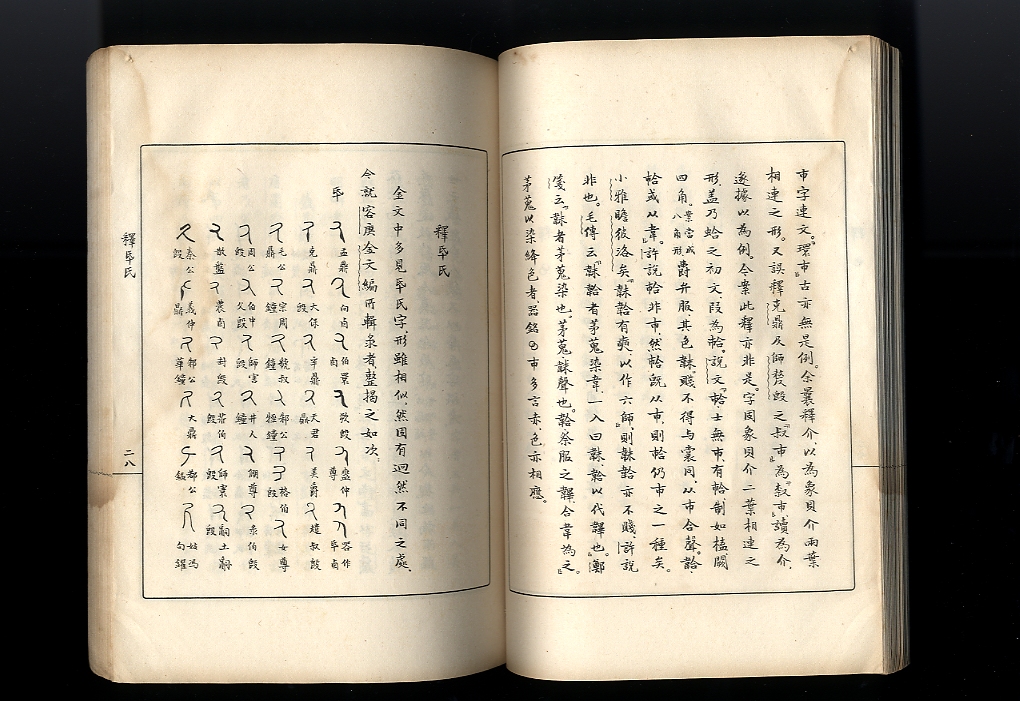 市字連文。『環市』古亦無是例。余曩釋介，以為象貝介兩葉
相連之形。又誤釋克鼎及師𠭰𣪘之『叔市』為『叔市』，讀為介，
遂據以為例。今案此釋亦非是。字固象貝介二葉相連之
形，蓋乃蛤之初文，叚為韐。說文『韐，士無市有韐，制如榼，闕
四角。業當成八角形爵弁服，其色韎，賤不得與裳同。从市合聲。韐，
韐或从韋。』許說韐非市，然韐旣从市，則韐仍市之一種矣。
小雅瞻彼洛矣『韎韐有奭，以作六師』，則韎韐亦不賤，許說
非也。毛傳云『韎韐者茅蒐染韋，一入曰韎，韐以代韠也。』鄭
箋云『韎者茅蒐染也，茅蒐韎聲也。韐祭服之韠，合韋為之。』
茅蒐以染絳色者，器銘呂市多言赤，色亦相應。
釋𠂤氏
金文中多見𠂤氏字，形雖相似，然固有迴然不同之處，
今就容庚金文編所輯录者整揭之如次：
盂鼎 向卣 伯睘卣 㱃𣪘 盠仲尊 器作 卣
克鼎 大保𣪘 宰鼎 天君鼎 美爵 趞叔𣪘
毛公鼎 宗周鐘 虢叔鐘 邾公牼鐘 格伯𣪘 女尊
周公𣪘 伯中父𣪘 師害𣪘 井人鐘 𠊱尊 彔伯𣪘
散盤 農卣 封𣪘 䇂伯𣪘 師㝨𣪘 嗣土嗣𣪘
秦公𣪘 義仲鼎 邾公華鐘 大鼎 都公鍴 姑馮句鑃
釋氒氏
二八